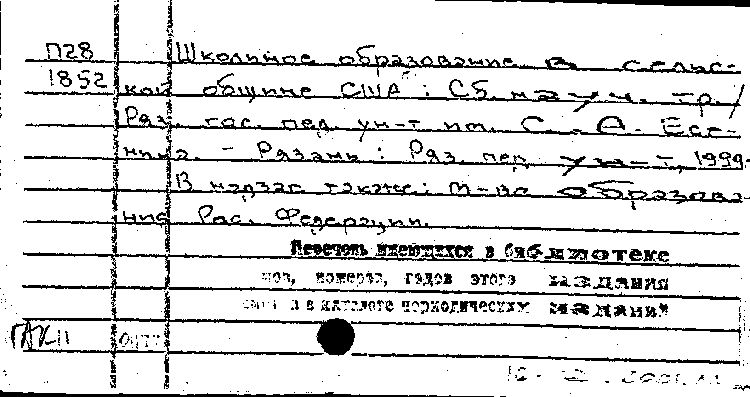 П28 Школьное образование в сельс-
1852 кой общине США : Сб. науч. тр. /
Ряз. гос. пед. ун-т им. С. А. Есе-
нина. - Рязань : Ряз. пед. ун-т, 1999-
В надзаг. также: М-во образова-
ние Рос. Федерации.
Перечень имеющихся в библиотеке
номеров, годов этого издания
в каталоге периодических изданий